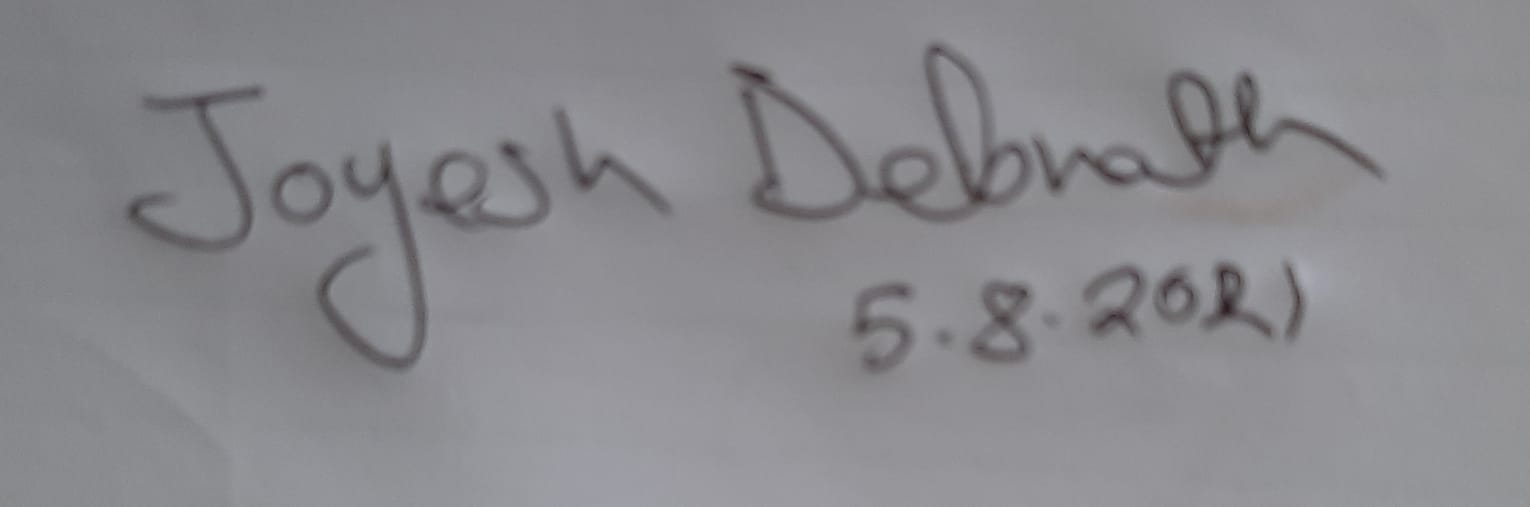 Joyesh Debnath
5.8.2021